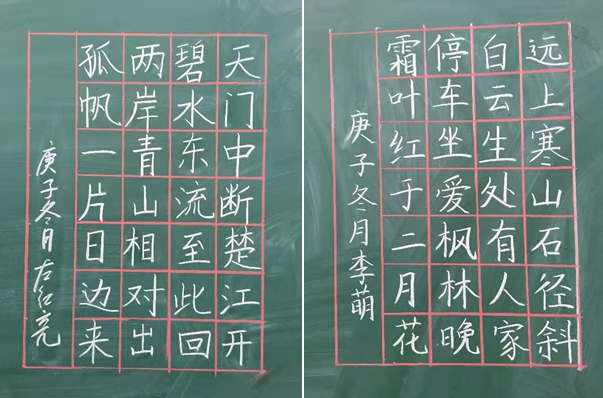 天门中断楚江开
碧水东流至此回
两岸青山相对出
孤帆一片日边来
庚子冬月左红亮
远上寒山石径斜
白云生处有人家
停车坐爱枫林晚
霜叶红于二月花
庚子冬月李萌